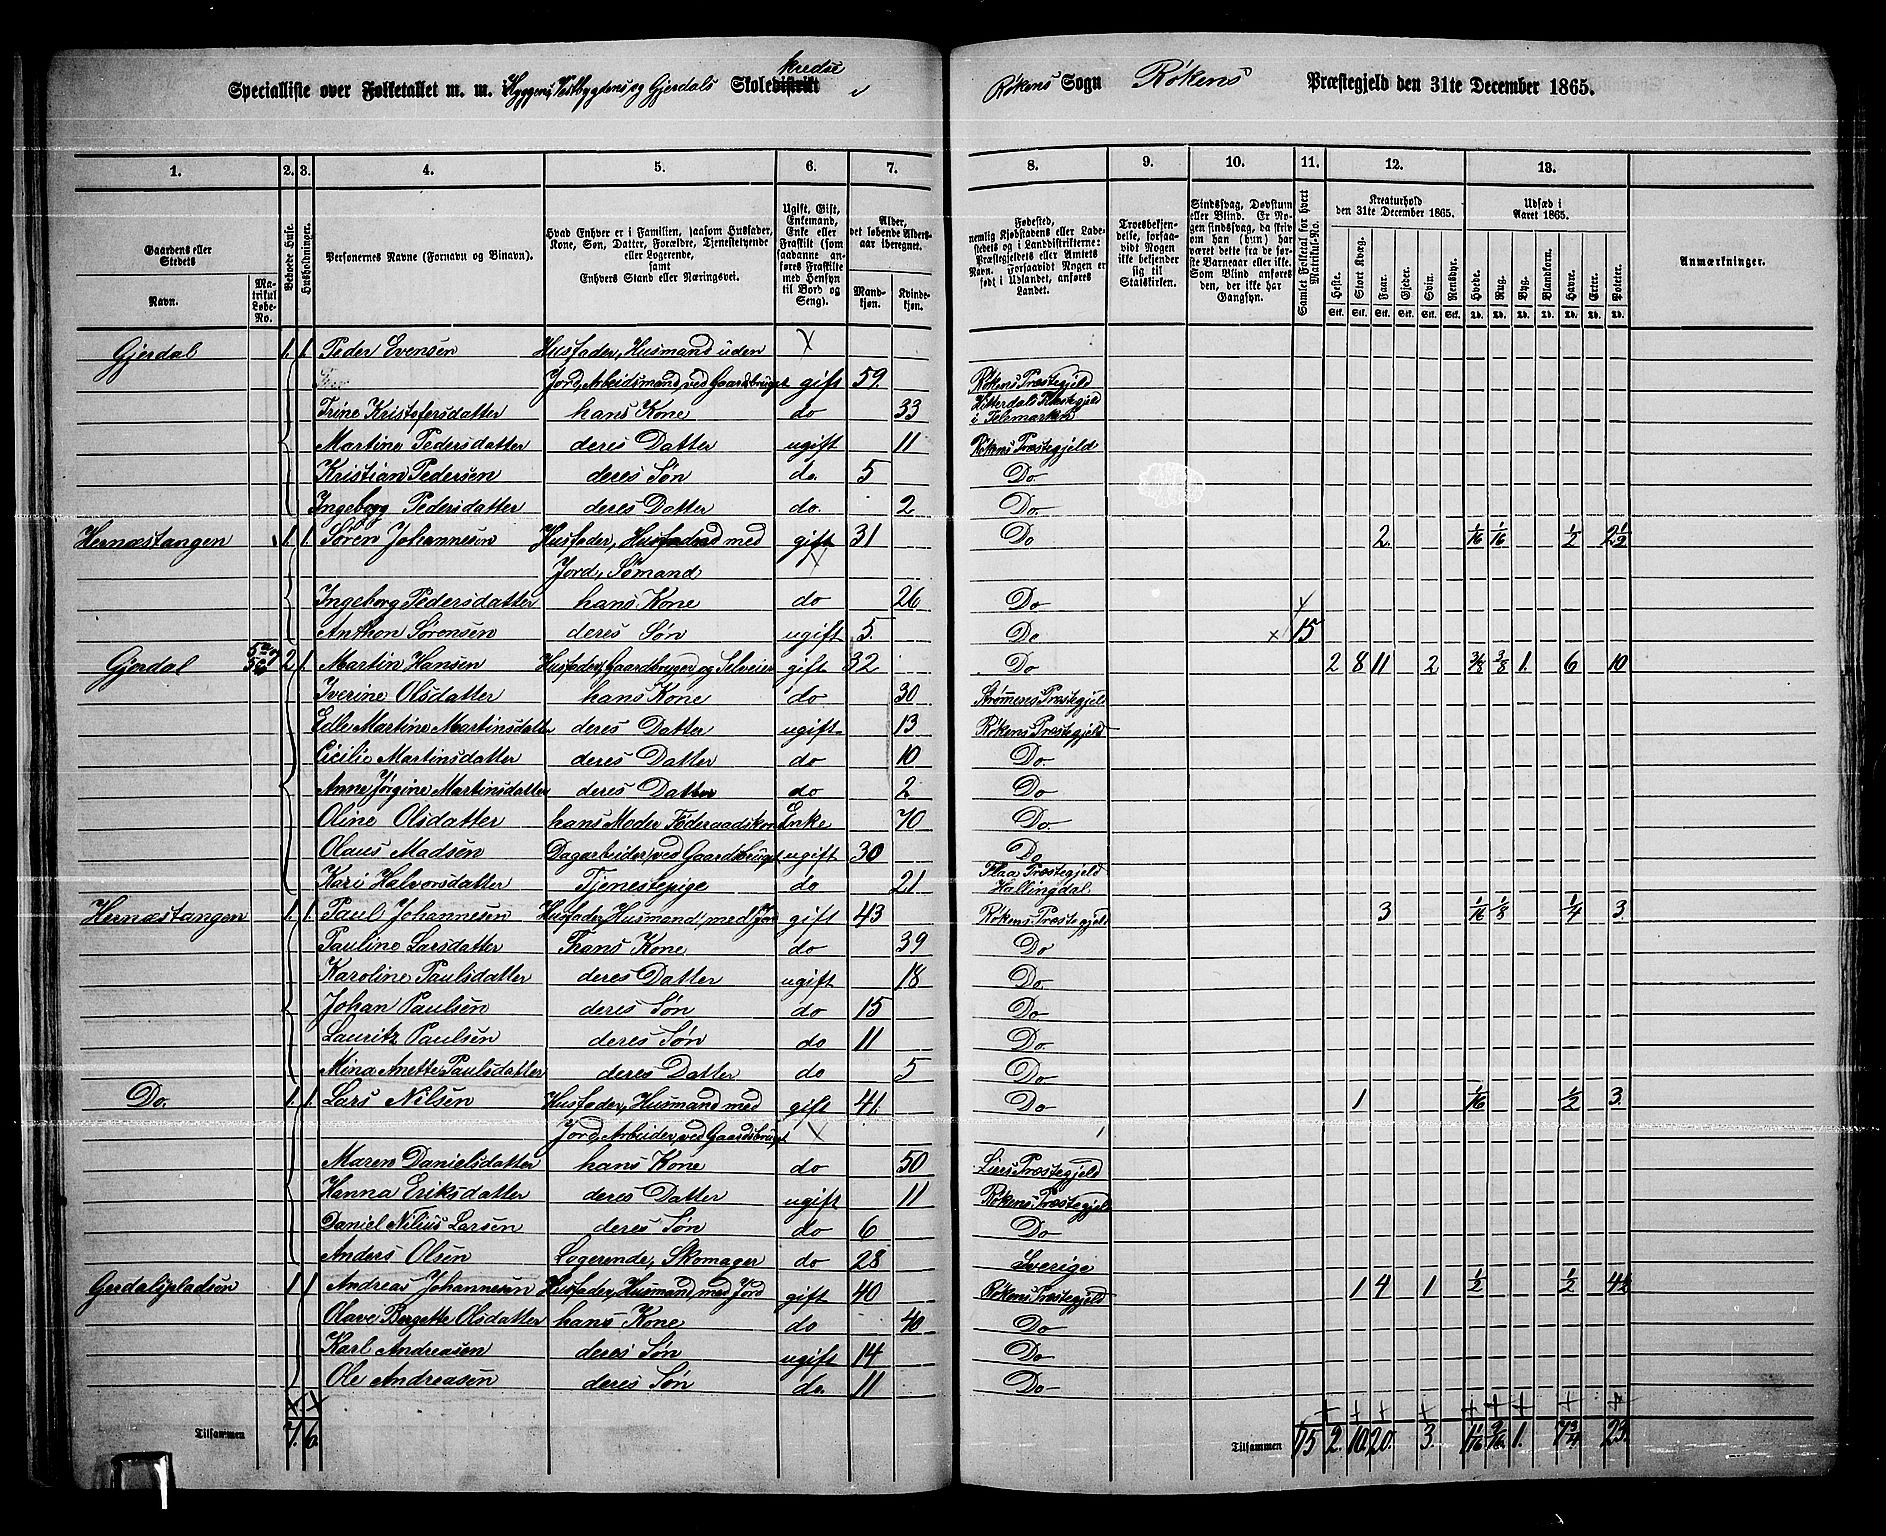 Specialliste over Folketallet m. m. Hyggens, Vestbygdens og Gjerdals Skoledistrikt kredse
Røkens Sogn Røkens Præstegjeld den 31te December 1865.
1. 2. 3. 4. 5. 6. 7. 8. 9. 10. 11. 12. 13.
Gaardens eller Stedets Navn. Matrikul Løbe-No. Beboede Huse. Husholdninger. Personernes Navne (Fornavn og Binavn). Hvad Enhver er i Familien, saasom Husfader, Kone, Søn, Datter, Forældre, Tjenestetyende eller Logerende, samt Enhvers Stand eller Næringsvei. Ugift, Gift, Enkemand, Enke eller Fraskilt (som saadanne anføres Fraskilte med Hensyn til Bord og Seng). Alder, det løbende Alders-aar iberegnet. Mandkjøn. Kvindekjøn.
Fødested, nemlig Kjøbstadens eller Ladestedets og i Landdistrikterne: Præstegjeldets eller Amtets Navn. Forsaavidt Nogen er født i Udlandet, anføres Landet. Troesbekjendelse, forsaavidt Nogen ikke bekjender sig til Statskirken. Sindssvag, Døvstum eller Blind. Er Nogen sindssvag, da skrives om han (hun) har været dette fra de første Barneaar eller ikke. Som Blind anføres den, der ikke har Gangsyn. Samlet Folketal for hvert Matrikul-No. Kreaturhold den 31te December 1865. Heste. Stort Kvæg. Faar. Gjeder. Svin. Rensdyr. Udsæd i Aaret 1865. Hvede. Rug. Byg. Blandkorn. Havre. Erter. Poteter. Anmærkninger.
Stk. Stk. Stk. Stk. Stk. Stk. Td. Td. Td. Td. Td. Td. Td.
Gjerdal 1. 1. Peder Evensen Husfader, Husmand uden X
Jord, Arbeidsmand ved Gaardsbruget gift 59. Røkens Præstegjeld
Trine Kristofersdatter hans Kone do 33 Hitterdals Præstegjeld i Telemarken
Martine Pedersdatter deres Datter ugift 11 Røkens Præstegjeld
Kristian Pedersen deres Søn do. 5 Do.
Ingeborg Pedersdatter deres Datter do. 2 Do.
Hernæstangen 1. 1. Søren Johannesen Husfader, Husmand med gift 31 Do 2. 1/16 1/16 1/2 2 1/2
Jord, Sømand X
Ingeborg Pedersdatter hans Kone do 26 Do
Anthon Sørensen deres Søn ugift 5. Do x 15
Gjerdal 5a og 5c 2 1. Martin Hansen Husfader, Gaardbruger og Selveier gift 32 Do 2 8 11 2 3/8 3/8 1. 6 10
Iverine Olsdatter hans Kone do 30 Strømens Præstegjeld
Edle Martine Martinsdatter deres Datter ugift 13 Røkens Præstegjeld
Cicilie Martinsdatter deres Datter do 10 Do.
Anne Jørgine Martinsdatter deres Datter do 2 Do
Oline Olsdatter hans Moder Føderaadskone Enke 70 Do.
Olaus Madsen Dagarbeider ved Gaardsbruget ugift 30 Do
Kari Halvorsdatter Tjenestepige do 21 Flaa Præstegjeld Hallingdal.
Hernæstangen 1. 1. Paul Johannesen Husfader, Husmand med Jord gift 43 Røkens Præstegjeld 3 1/16 1/8 1/4 3.
Pauline Larsdatter hans Kone do 39 Do
Karoline Paulsdatter deres Datter ugift 18 Do
Johan Paulsen deres Søn do 15 Do
Lauritz Paulsen deres Søn do 11 Do
Mina Anette Paulsdatter deres Datter do 5 Do
Do. 1. 1. Lars Nilsen Husfader, Husmand med gift 41. Do 1 1/16 1/2 3.
Jord, Arbeider ved Gaardsbruget X
Maren Danielsdatter hans Kone do 50 Liers Præstegjeld
Hanna Eriksdatter deres Datter ugift 11 Røkens Præstegjeld
Daniel Nilius Larsen deres Søn do 6 Do
Anders Olsen Logerende, Skomager do 28 Sverige
Gerdalspladsen 1 1 Andreas Johannesen Husfader, Husmand med Jord gift 40 Røkens Præstegjeld 1 4 1 1/2 1/2 4 1/2
Olave Bergette Olsdatter hans Kone do 40 Do
Karl Andreasen deres Søn ugift 14 Do
Ole Andreasen deres Søn do. 11 Do
Tilsammen 7. 6. Tilsammen 15 2. 10. 20. 3. 1 1/16 9/16 1. 7 3/4 23.